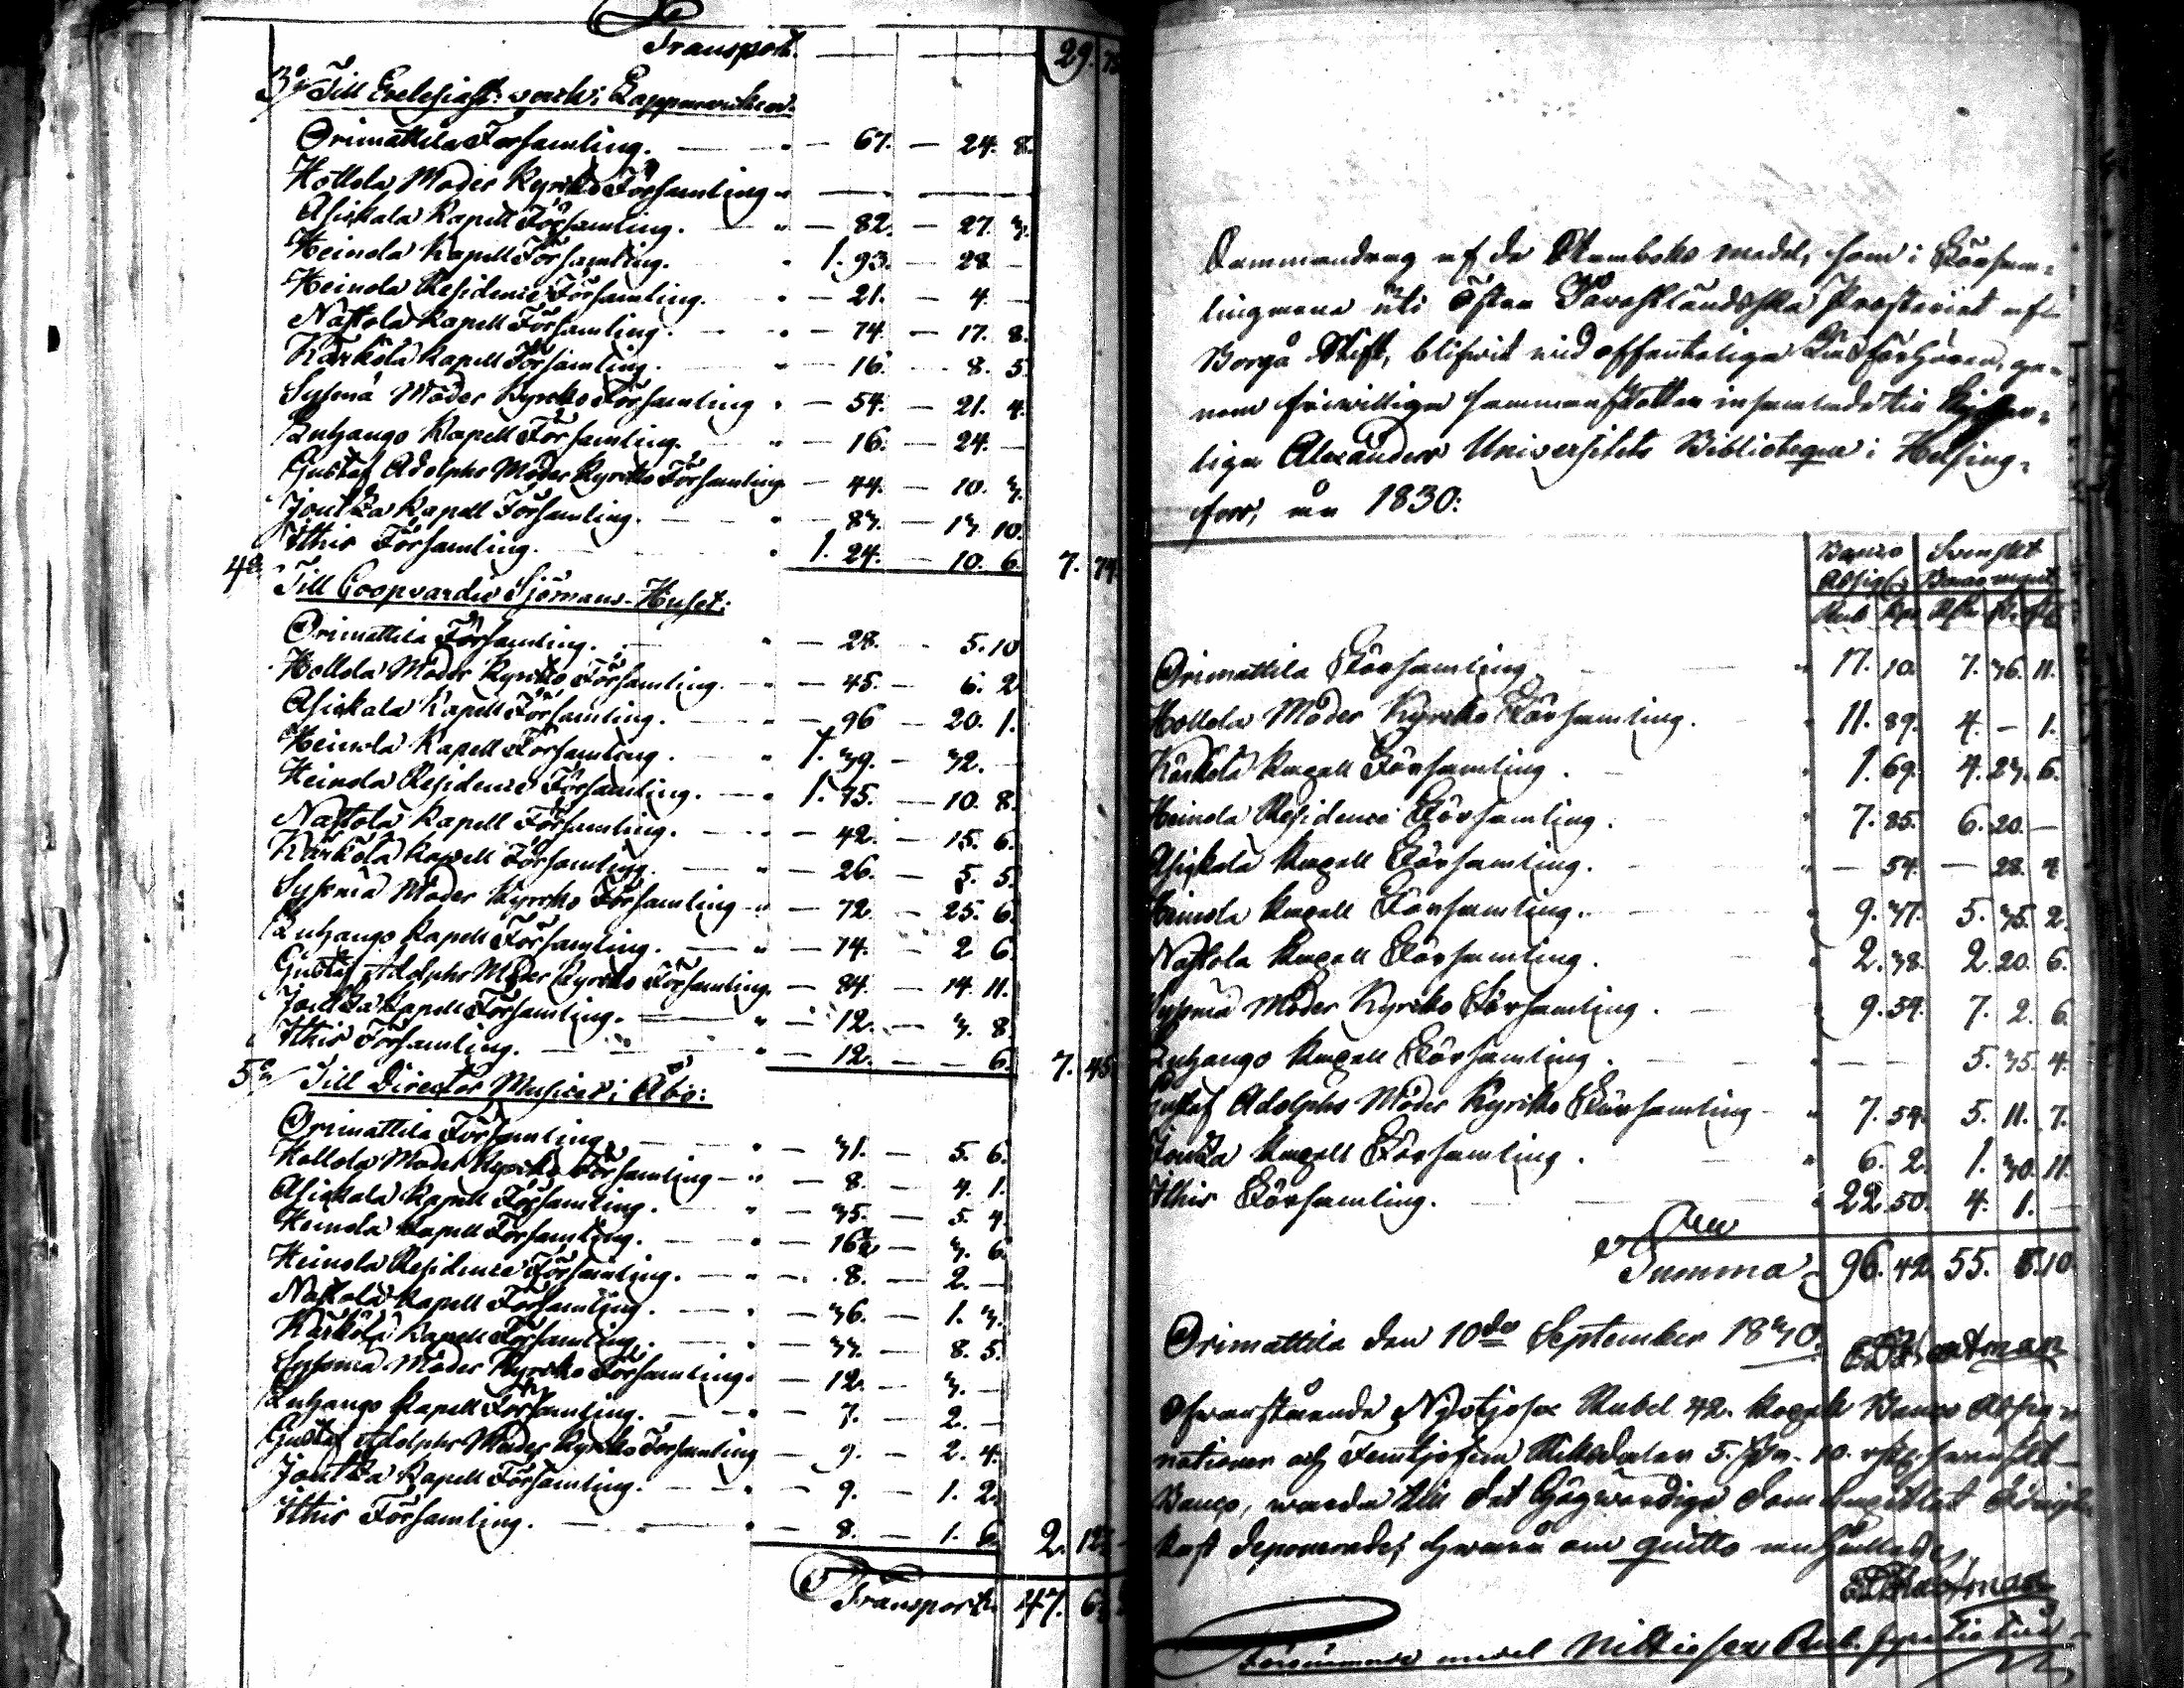 Transport. — — — 29. 73
3:o/ Till Ecclesiast: verk i Lappmarken.
Orimattila Församling. — " — 67. — 24. 8.
Hollola Moder Kyrko Församling " — — —
Asikkala Kapell Församling. — " — 82. — 27. 3.
Heinola Kapell Församling. " 1. 93. — 28 —
Heinola Residence Församling. " — 21. — 4. —
Nastola Kapell Församling. — " — 74. — 17. 8.
Kärkölä Kapell Församling. " — 16. — 8. 5.
Sysmä Moder Kyrko Församling " — 54. — 21. 4.
Luhango Kapell Församling. — " — 16. — 24. —
Gustaf Adolphs Moder Kyrko Församling — 44. — 10. 3.
Joutsa Kapell Församling. — " — 83. — 13. 10.
Ithis Församling. " 1. 24. — 10. 6. 7. 74
4:o Till Coopvardie Sjömans-Huset:
Orimattila Församling. — " — 28. — 5. 10
Hollola Moder Kyrko Församling. — " — 45. — 6. 2
Asikkala Kapell Församling. — " — 96 — 20. 1.
Heinola Kapell Församling. — " 1. 39. — 32. —
Heinola Residence Församling. — " 1. 75. — 10. 8.
Nastola Kapell Församling. — " — 42. — 15. 6.
Kärkölä Kapell Församling. — " — 26. — 5. 5.
Sysmä Moder Kyrko Församling " — 72. — 25. 6.
Luhango Kapell Församling. — " — 14. — 2 6.
Gustaf Adolphs Moder Kyrko Församling. — 84. — 14. 11.
Joutsa Kapell Församling. — " — 12. — 3. 8.
Ithis Församling. — " — 12. — — 6. 7. 45
5:o/ Till Director Musices i Åbo:
Orimattila Församling. — " — 31. — 5. 6.
Hollola Moder Kyrko Församling — " — 8. — 4. 1.
Asikkala Kapell Församling. — " — 35. — 5. 4.
Heinola Kapell Församling. — " — 16½ — 3. 6.
Heinola Residence Församling. — " — 8. — 2. —
Nastola Kapell Församling. — " — 36. — 1. 3.
Kärkölä Kapell Församling. — " — 33. — 8. 5.
Sysmä Moder Kyrko Församling. — 12. — 3. —
Luhango Kapell Församling. — " — 7. — 2. —
Gustaf Adolphs Moder Kyrko Församling — 9. — 2. 4.
Joutsa Kapell Församling. — " — 9. — 1. 2.
Ithis Församling. — " — 8. — 1. 6. 2. 12
Transport. 47. 6
Sammandrag af de Stamboks medel, som i Församlingarne
uti Östra Tavastländska Prosteriet af
Borgå Stift, blifvit vid offentelige Läsförhören, genom
frivillige sammanskotten insamlade till Kejserliga
Alexanders Universitets Biblioteque i Helsingfors,
år 1830:
Banco Assign: Svenskt Banco mynt
Rub Kop Rdr sk. rst
Orimattila Församling — " 17. 10. 7. 36. 11.
Hollola Moder Kyrko Församling. " 11. 89. 4. — 1.
Kärkölä Kapell Församling. " 1. 69. 4. 23. 6.
Heinola Residence Församling. " 7. 85. 6. 20. —
Asikkala Kapell Församling. " — 54. — 28. 4
Heinola Kapell Församling. " 9. 37. 5. 35. 2.
Nastola Kapell Församling. " 2. 38. 2. 20. 6.
Sysmä Moder Kyrko Församling. " 9. 54. 7. 2. 6.
Luhango Kapell Församling. " — — 5. 35. 4.
Gustaf Adolphs Moder Kyrko Församling — " 7. 54. 5. 11. 7.
Joutsa Kapell Församling. " 6. 2. 1. 30. 11.
Ithis Församling. " 22. 50. 4. 1. —
Summa 96. 42. 55. 5. 10.
Orimattila den 10de September 1830.
Ofvanstående Nijotijosex Rubel 42. kopek Banco Assignationer
och Femtijofem Riksdaler 5. sk. 10. rst. svenskt
Banco, warda till det Högwördige Dom Capitlet
deponerade, hwarå om quitto anhålles.